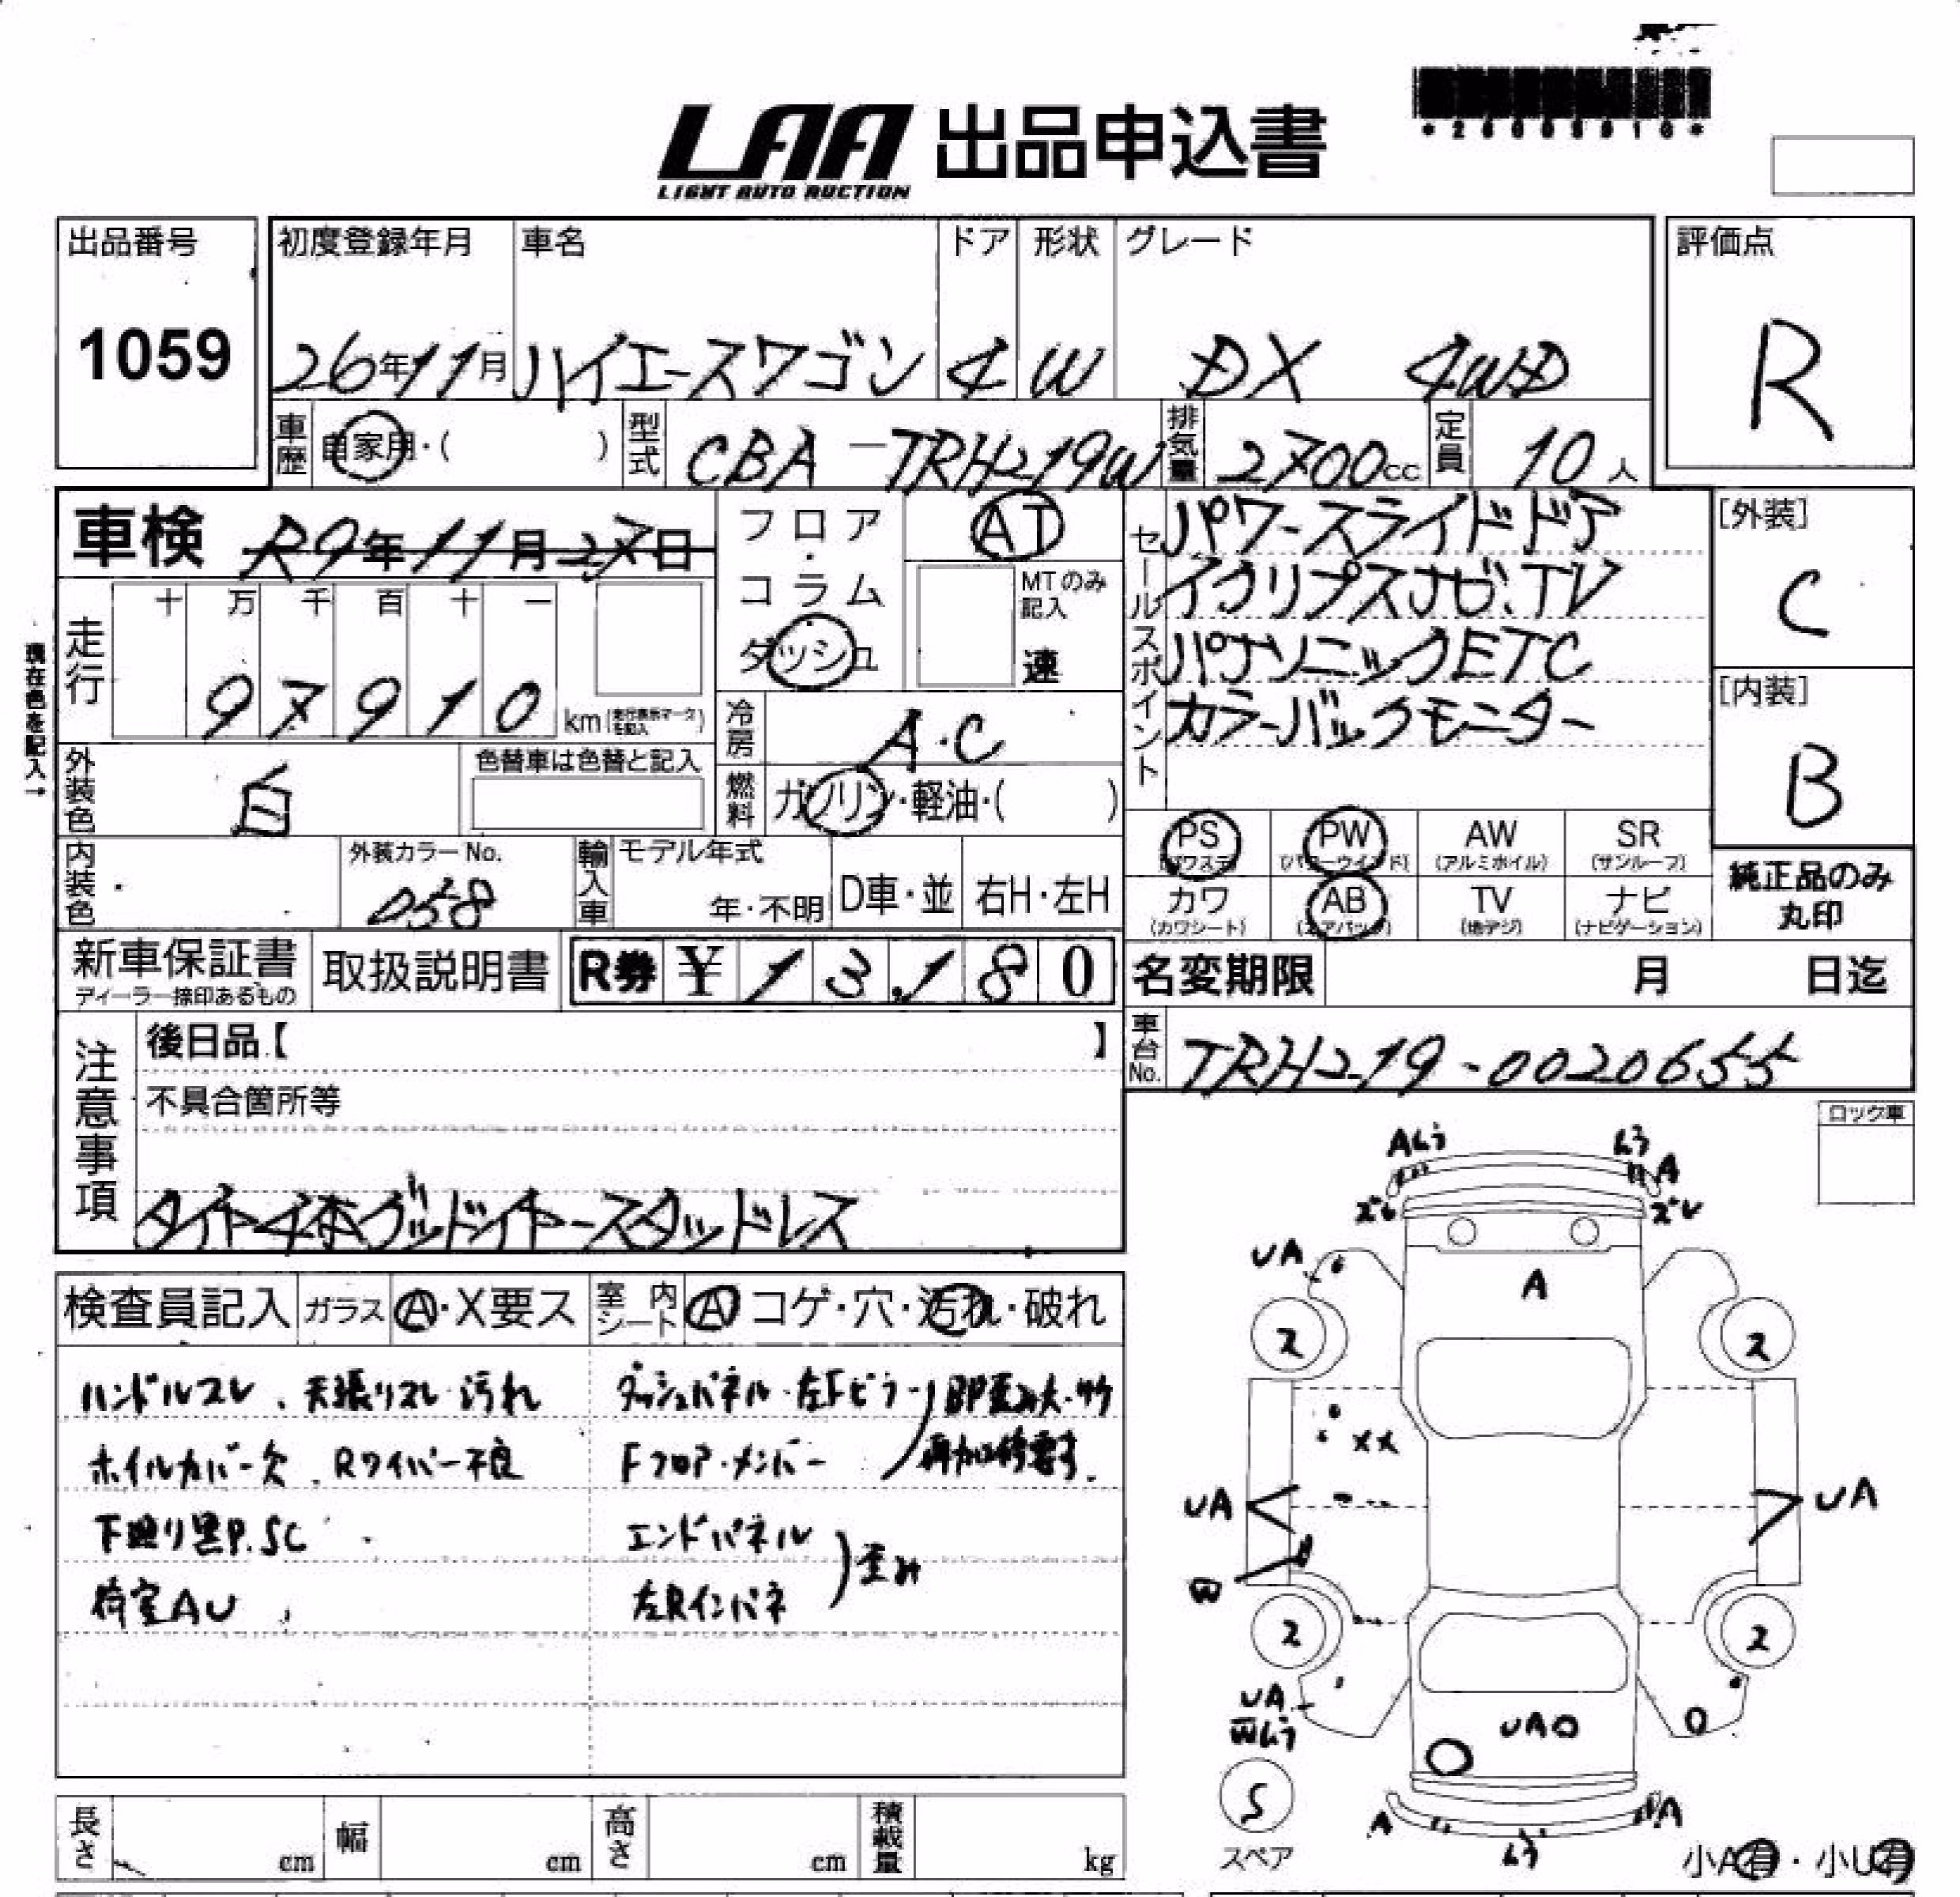 *26005010*
LAA 出品申込書
LIGHT AUTO AUCTION
出品番号
1059
初度登録年月 車名 ドア 形状 グレード
26年11月 ハイエースワゴン 4 W DX 4WD
評価点
R
車歴 自家用・( ) 型式 CBA-TRH219W 排気量 2700cc 定員 10人
車検 R9年11月27日
フロア・コラム・ダッシュ
AT
MTのみ記入
速
セールスポイント
パワースライドドア
イクリプスナビ、TV
パナソニックETC
カラーバックモニター
[外装]
C
[内装]
B
現在色を記入→
走行 十 万 千 百 十 一
97910 km(走行表示マークを記入)
冷房 A・C
外装色 白 色替車は色替と記入
燃料 ガソリン・軽油・( )
内装色 外装カラーNo. 058
輸入車 モデル年式 年・不明 D車・並 右H・左H
PS (パワステ) PW (パワーウインド) AW (アルミホイル) SR (サンルーフ)
カワ (カワシート) AB (エアバッグ) TV (地デジ) ナビ (ナビゲーション)
純正品のみ丸印
新車保証書 ディーラー捺印あるもの 取扱説明書 R券 ¥13,180
名変期限 月 日迄
車台No. TRH219-0020655
注意事項
後日品【 】
不具合箇所等
タイヤ4本グッドイヤースタッドレス
ロック車
検査員記入 ガラス A・X要ス 室内シート A コゲ・穴・汚れ・破れ
ハンドルスレ、天張リスレ・汚れ
ホイルカバー欠、Rワイパー不良
下廻り黒P.SC
荷室AU
ダッシュパネル・左Fピラー
Fフロア・メンバー
即歪み大・サケ
再加修要す.
エンドパネル
左Rインパネ
歪み
Aムラ ムラ A
ズレ ズレ
UA
A
2 2
XX
UA UA
W
2 2
UA
Wムラ
UAO
O
S
スペア
A ムラ A
小A有・小U有
長さ cm 幅 cm 高さ cm 積載量 kg